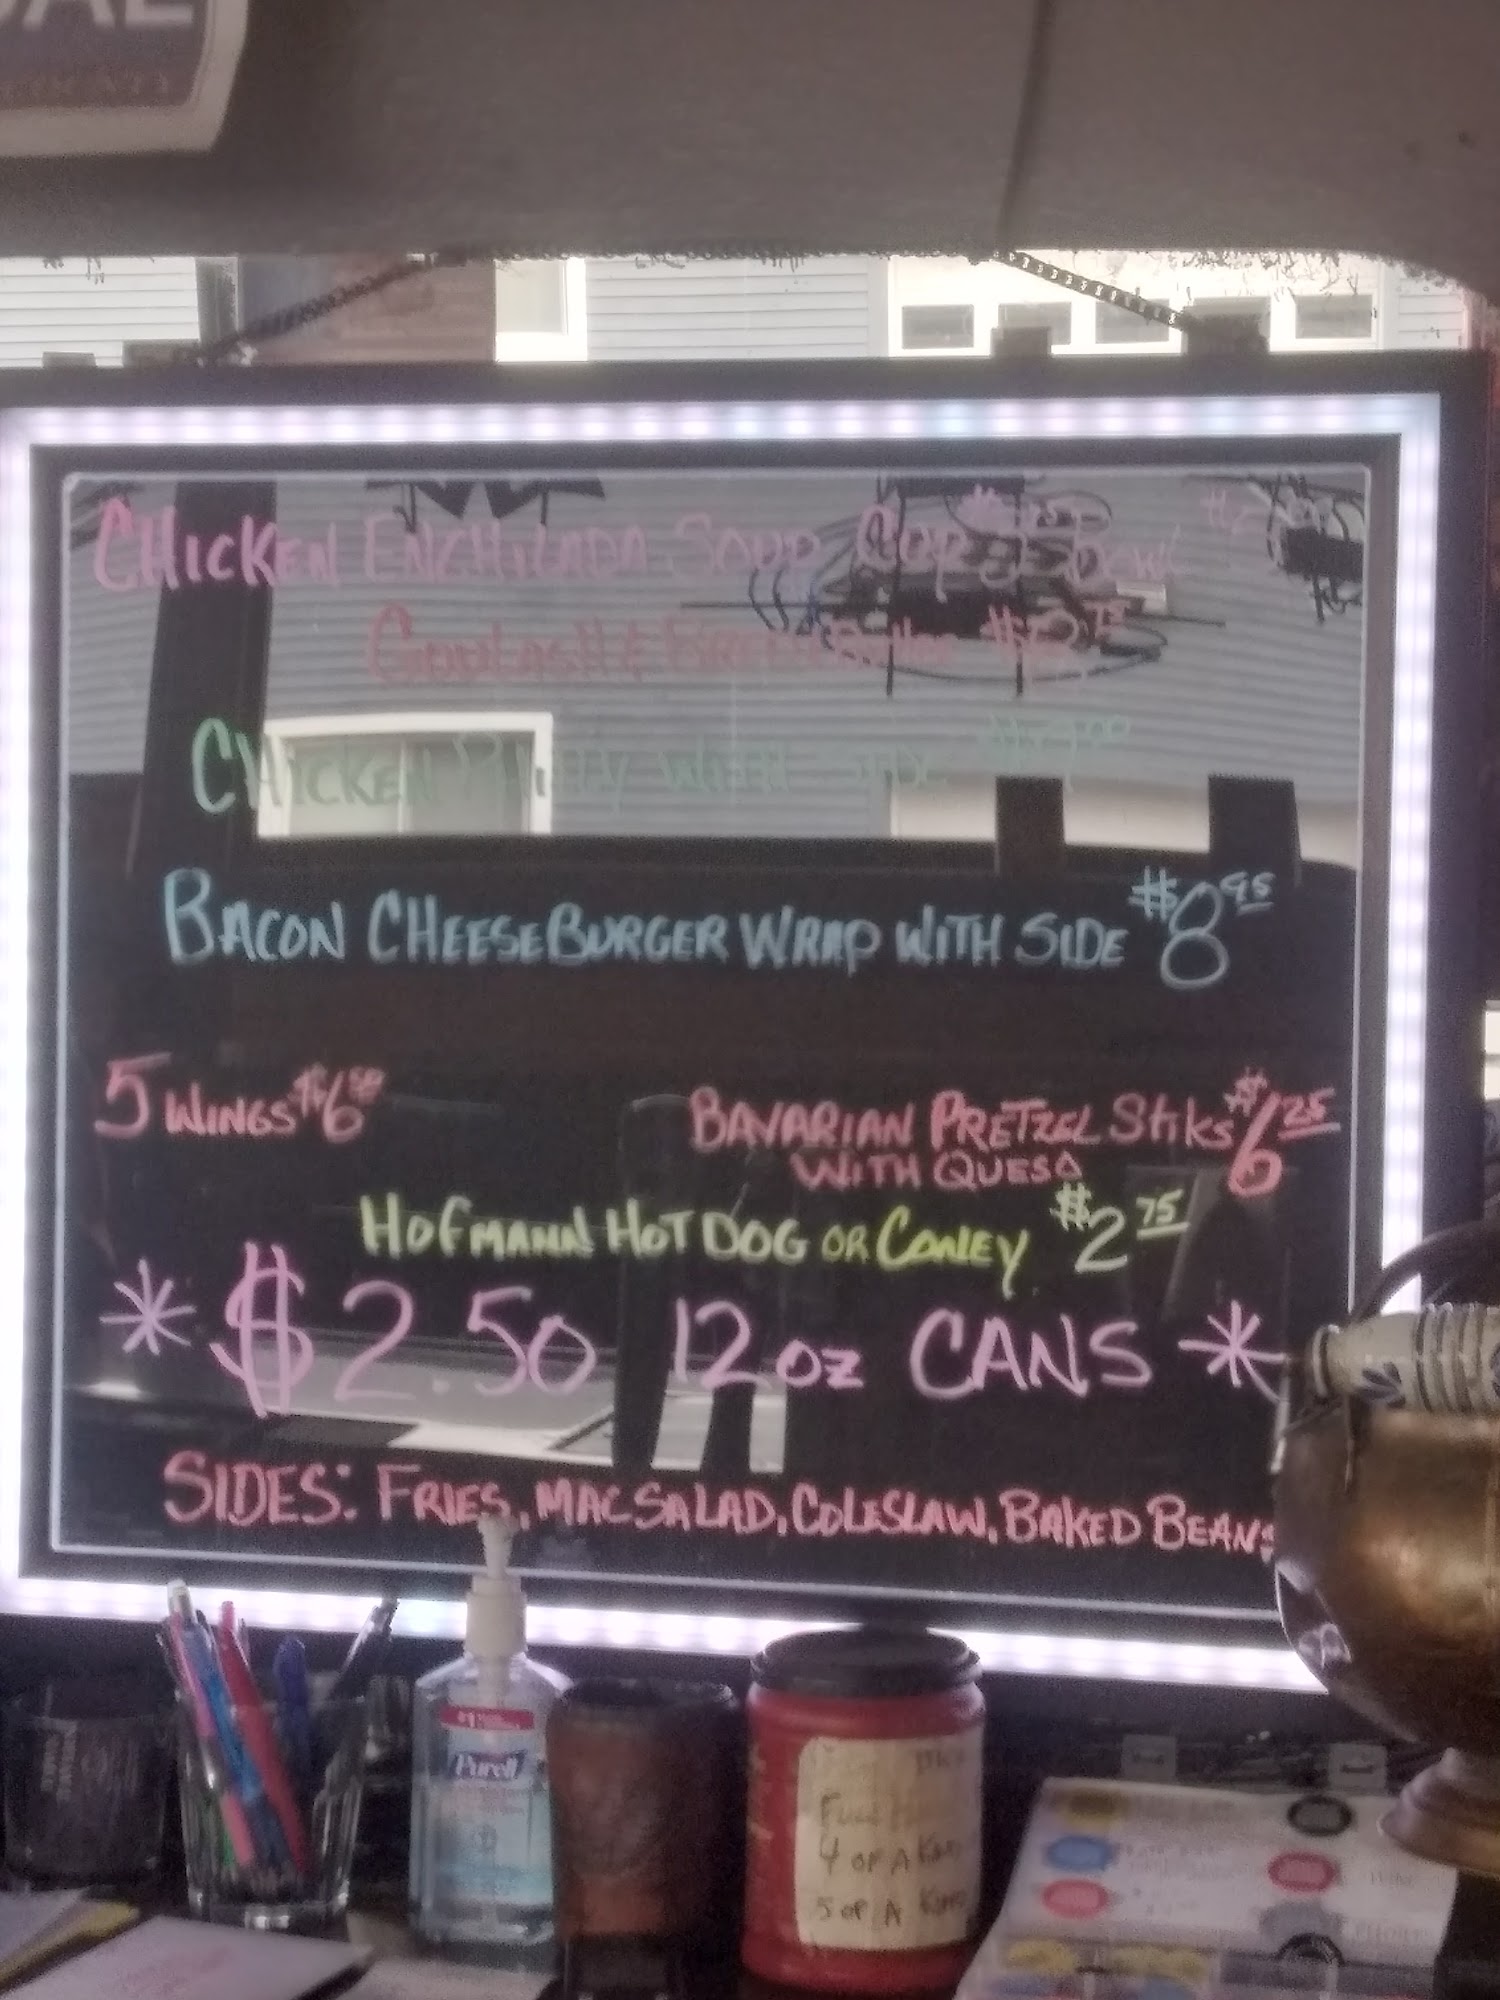 CHICKEN ENCHILADA SOUP CUP BOWL
GOULASH &
CHICKEN PHILLY WITH SIDE
BACON CHEESEBURGER WRAP WITH SIDE $8.95
5 WINGS $6.50
BAVARIAN PRETZEL Stiks $6.25
WITH QUESO
HOFMANN HOT DOG OR CONEY $2.75
* $2.50 12oz CANS *
SIDES: FRIES, MAC SALAD, COLESLAW, BAKED BEANS
Purell
FULL
4 OF A KIND
5 OF A KIND